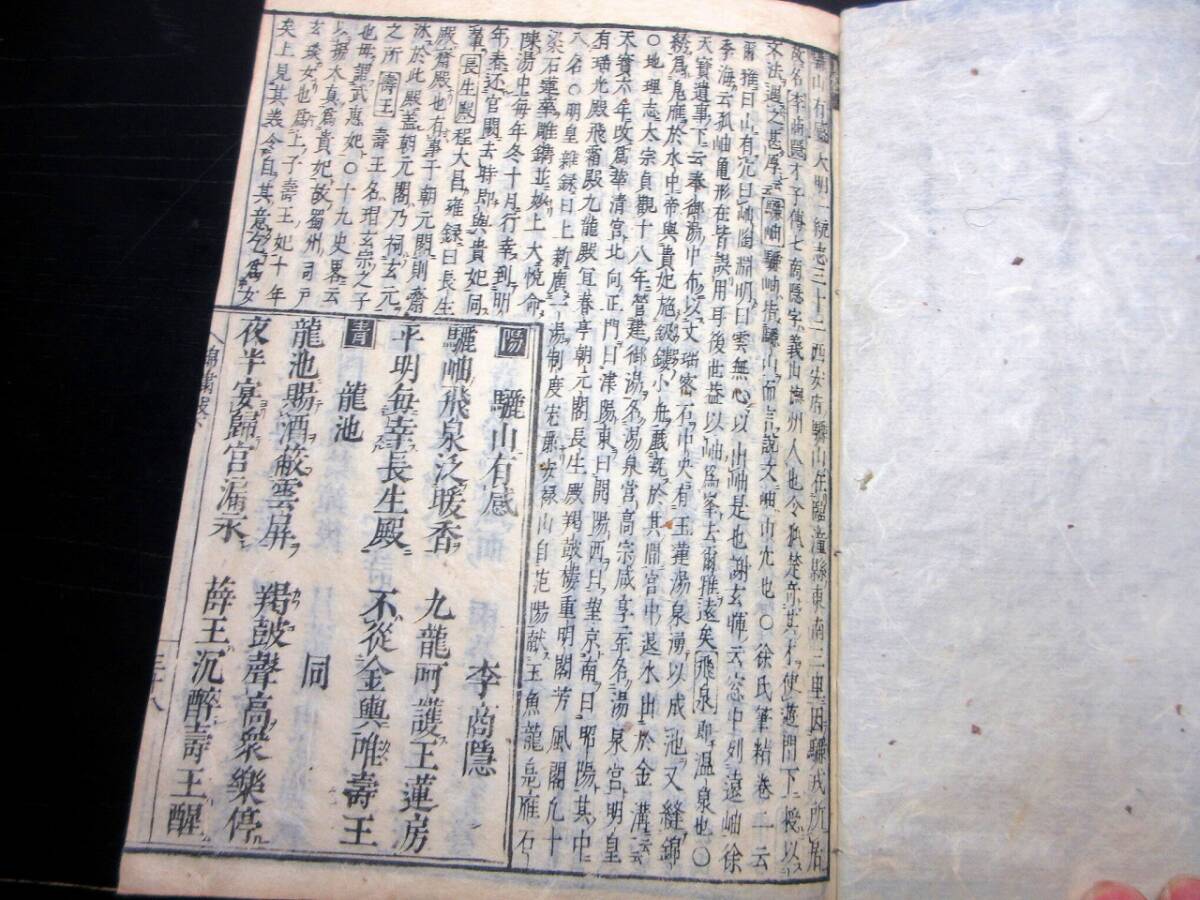 驪山有感 大明一統志三十二西安府驪山在臨潼縣東南二里因驪戎所居
故名 李商隱 才子傳七商隱字義山懷州人也令狐楚奇其才使遊門下授以
文法遇之甚厚 驪岫 驪岫指驪山而言說文岫山穴也○徐氏筆精卷二云
爾雅曰山有穴曰岫陶淵明曰雲無心以出岫是也謝玄暉云窓中列遠岫徐
季海云孤岫龜形在皆誤用耳後世益以岫爲峯去爾雅遠矣 飛泉 即溫泉也○
天寶遺事下云奉御湯中布以文瑶密石中央有玉蓮湯泉湧以成池又縫錦
綉爲鳧雁於水中帝與貴妃施鈒鏤小舟戲翫於其間宮中退水出於金溝云
○地理志太宗貞觀十八年營建御湯名湯泉宮高宗咸亨二年名溫泉宮明皇
天寶六年改爲華清宮北向正門曰津陽東曰開陽西曰望京南曰昭陽其中
有瑤光殿飛霜殿九龍殿宜春亭朝元閣長生殿羯鼓樓重明閣芳風閣凡十
八名○明皇雜錄曰上新廣一湯制度宏麗安祿山自范陽獻玉魚龍鳧雁石
梁石蓮華雕鐫並妙上大悅命
陳湯中每年冬十月行幸到明
年春還宮闕去時即與貴妃同
輦 長生殿 程大昌雍錄曰長生
殿齋殿也有事于朝元閣則齋
沐於此殿蓋朝元閣乃祠玄元
之所 壽王 壽王名瑁玄宗之子
也母罪武惠妃○十九史畧云
以楊太真爲貴妃故蜀州司戶
玄琰女也爲上子壽王妃十年
矣上見其美令自其意乞爲女
陽 驪山有感 李商隱
驪岫飛泉泛暖香 九龍呵護玉蓮房
平明每幸長生殿 不從金輿唯壽王
青 龍池 同
龍池賜酒敞雲屏 羯鼓聲高衆樂停
夜半宴歸宮漏永 薛王沉醉壽王醒
三十八